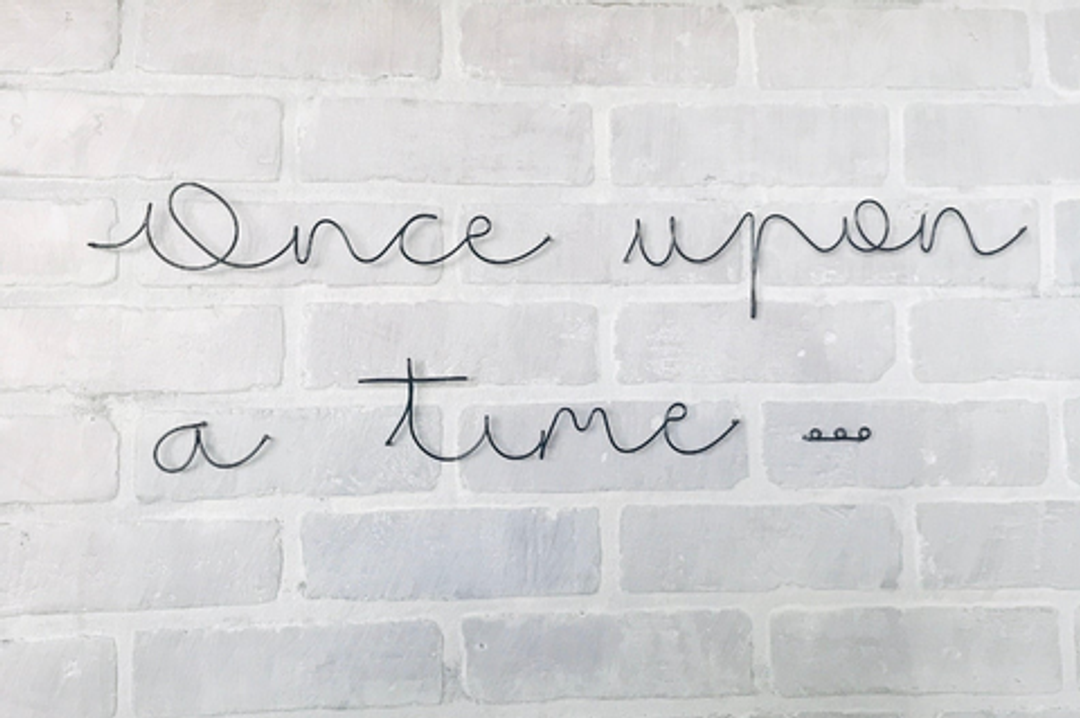 Once upon
a time ...